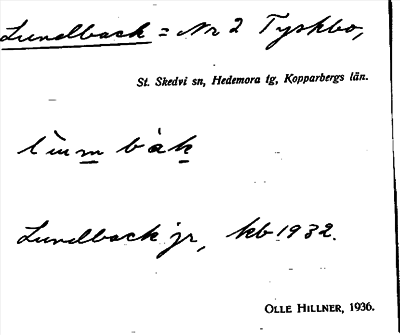 Lundback = Nr 2 Tyskbo,
St. Skedvi sn, Hedemora tg, Kopparbergs län.
lùm bàk
Lundback jr, kb 1932.
OLLE HILLNER, 1936.